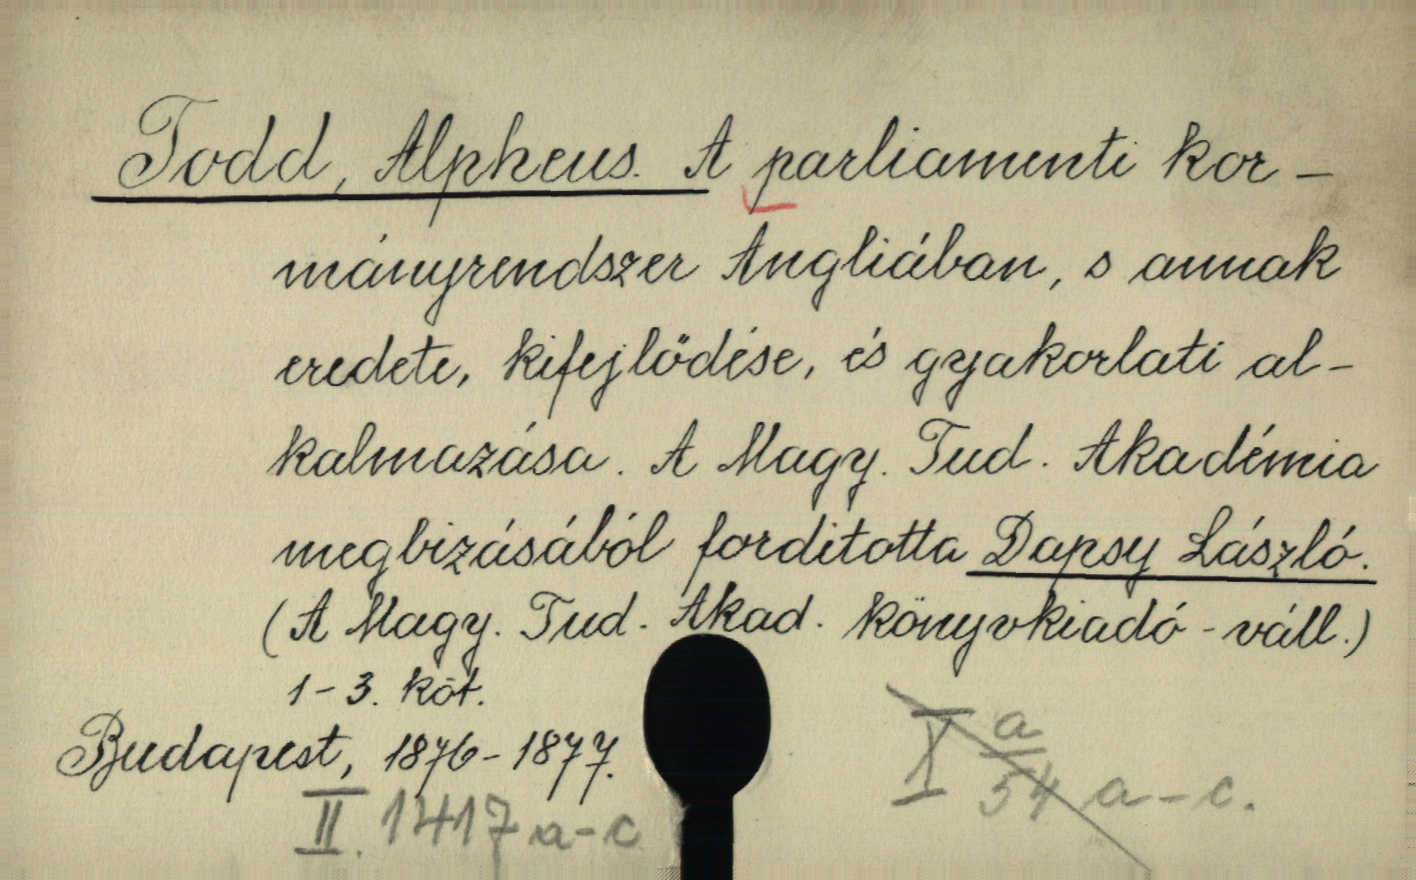 Todd, Alpheus. A parliamenti kor-
mányrendszer Angliában, s annak
eredete, kifejlődése, és gyakorlati al-
kalmazása. A Magy. Tud. Akadémia
megbizásából forditotta Dapsy László.
(A Magy. Tud. Akad. könyvkiadó-váll.)
1-3. köt.
Budapest, 1876-1877.
X a/54 a-c.
II. 1417 a-c